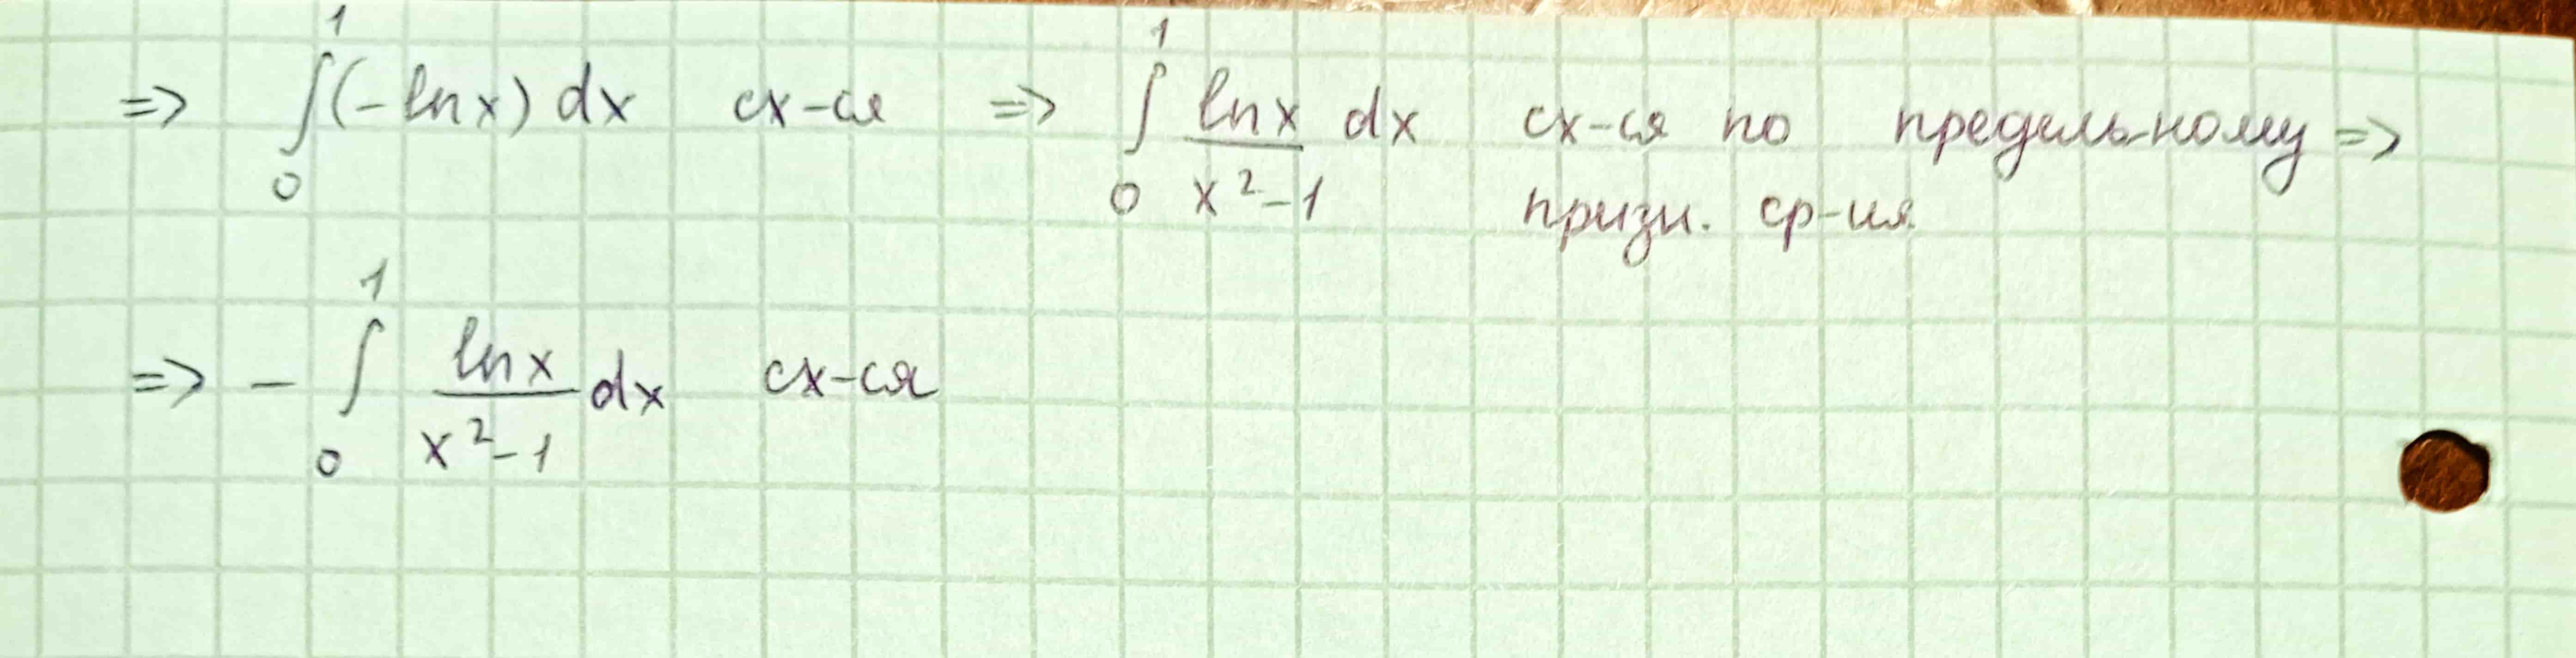 => ∫₀¹ (-ln x) dx сх-ся => ∫₀¹ ln x / (x² - 1) dx сх-ся по предельному =>
призн. ср-ия
=> - ∫₀¹ ln x / (x² - 1) dx сх-ся